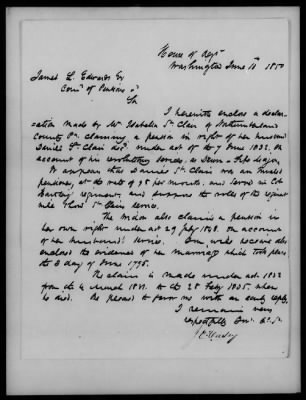 House of Rep's
Washington June 11th 1850
James L. Edwards Esq
Com'r of Pensions
Sir
I herewith enclose a decla-
ration made by Mrs Isabella St Clair of Northumberland
County Pa. claiming a pension in right of her husband
Daniel St Clair decd. under act of the 7 June 1832, on
account of his revolutionary services, as Drum & Fife Major.
It appears that Daniel St Clair was an Invalid
pensioner, at the rate of 9$ per month, and served in Col
regiment, and the rolls of the regiment
will show St Clair's service.
The widow also claims a pension in
her own right under act 29 July 1848. On account
of her husband's service. One will also
enclosed the evidence of her marriage which took place
the 3 day of June 1795.
The claim is made under act 1832
from the 4 March 1831. to the 28 Feby 1835. when
he died. Be pleased to favor me with an early reply,
I remain very
respectfully